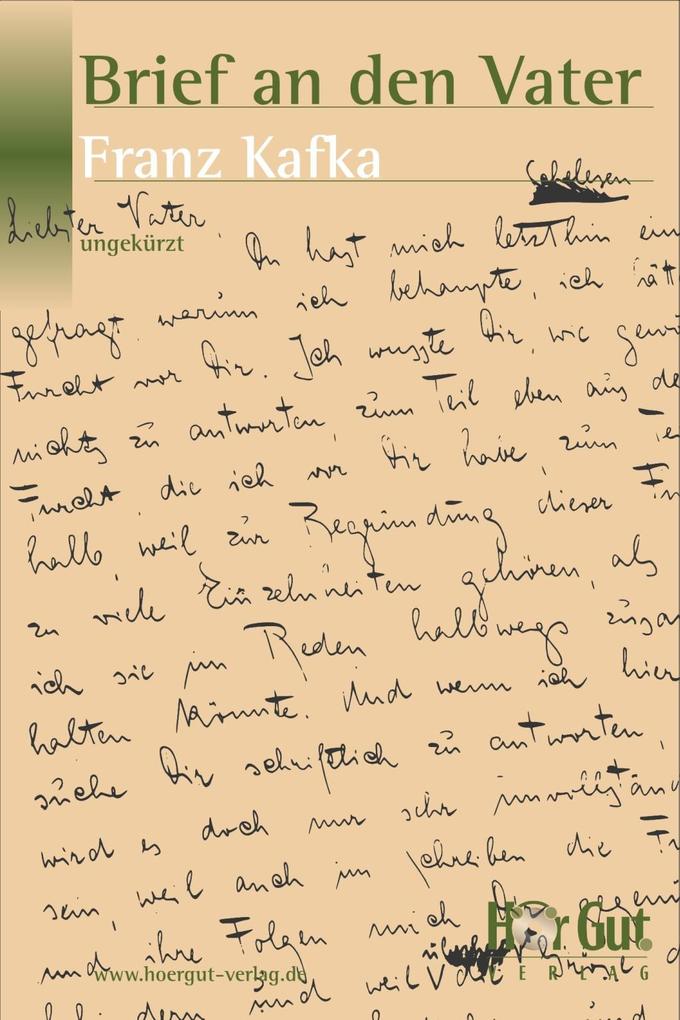 Brief an den Vater
Franz Kafka
Liebster Vater,
ungekürzt
Du hast mich letzthin ein
gefragt, warum ich behaupte, ich hätt
Furcht vor Dir. Ich wusste Dir, wie gewö
nichts zu antworten, zum Teil eben aus de
Furcht, die ich vor Dir habe, zum Tei
halb, weil zur Begründung dieser Fu
zu viele Einzelnheiten gehören, als
ich sie im Reden halbwegs zusa
halten könnte. Und wenn ich hier
suche Dir schriftlich zu antworten,
wird es doch nur sehr unvollständ
sein, weil auch im Schreiben die Fu
und ihre Folgen mich Dir gegenü
Hör Gut
VERLAG
www.hoergut-verlag.de
und weil die